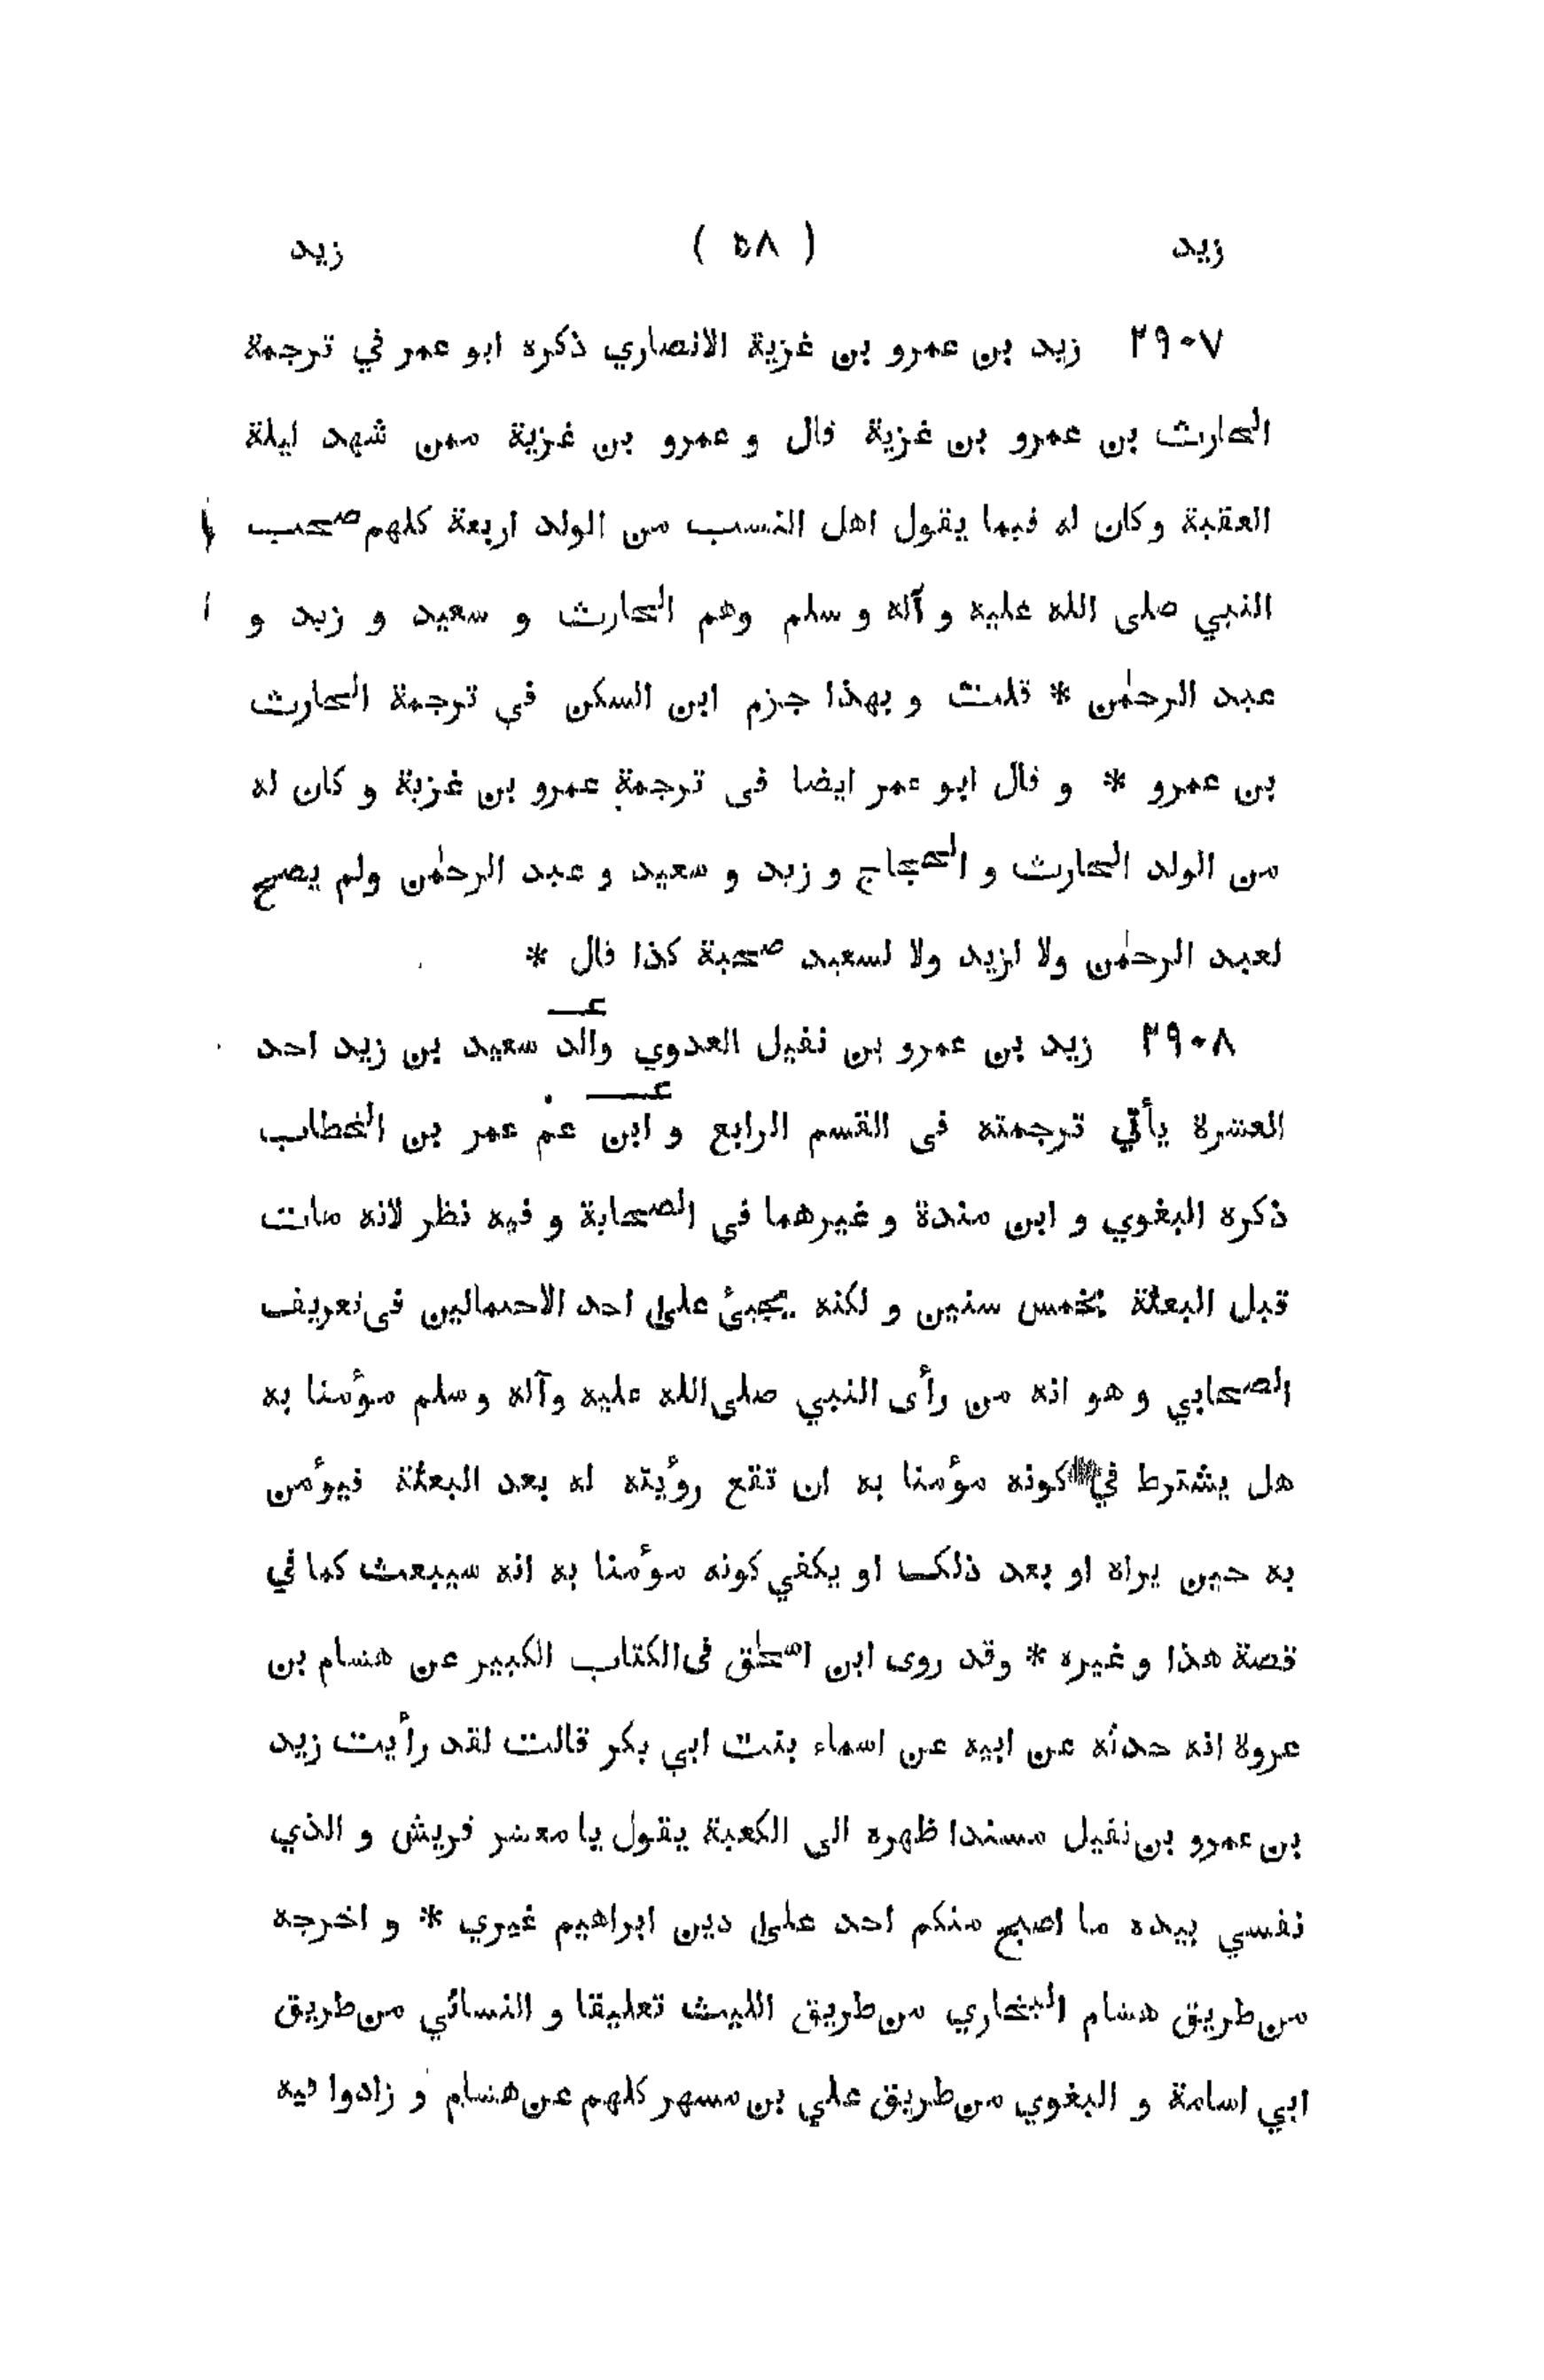 زيد ( ٥٨ ) زيد
٢٩٠٧ زيد بن عمرو بن غزية الانصاري ذكره ابو عمر في ترجمة
الحارث بن عمرو بن غزية قال و عمرو بن غزية ممن شهد ليلة
العقبة وكان له فيما يقول اهل النسب من الولد اربعة كلهم صحب
النبي صلى الله عليه و آله و سلم وهم الحارث و سعيد و زيد و
عبد الرحمٰن * قلت و بهذا جزم ابن السكن في ترجمة الحارث
بن عمرو * و قال ابو عمر ايضا فى ترجمة عمرو بن غزية و كان له
من الولد الحارث و الحجاج و زيد و سعيد و عبد الرحمٰن ولم يصح
لعبد الرحمٰن ولا لزيد ولا لسعيد صحبة كذا قال *
٢٩٠٨ زيد بن عمرو بن نفيل العدوي والد سعيد بن زيد احد
العشرة يأتي ترجمته فى القسم الرابع و ابن عم عمر بن الخطاب
ذكره البغوي و ابن مندة و غيرهما فى الصحابة و فيه نظر لانه مات
قبل البعثة بخمس سنين و لكنه يجيئ على احد الاحتمالين فى تعريف
الصحابي و هو انه من رأى النبي صلى الله عليه وآله و سلم مؤمنا به
هل يشترط في كونه مؤمنا به ان تقع رؤيته له بعد البعثة فيؤمن
به حين يراه او بعد ذلك او يكفي كونه مؤمنا به انه سيبعث كما في
قصة هذا و غيره * وقد روى ابن اسحٰق فى الكتاب الكبير عن هشام بن
عروة انه حدثه عن ابيه عن اسماء بنت ابي بكر قالت لقد رأيت زيد
بن عمرو بن نفيل مسندا ظهره الى الكعبة يقول يا معشر قريش و الذي
نفسي بيده ما اصبح منكم احد على دين ابراهيم غيري * و اخرجه
من طريق هشام البخاري من طريق الليث تعليقا و النسائي من طريق
ابي اسامة و البغوي من طريق علي بن مسهر كلهم عن هشام و زادوا فيه